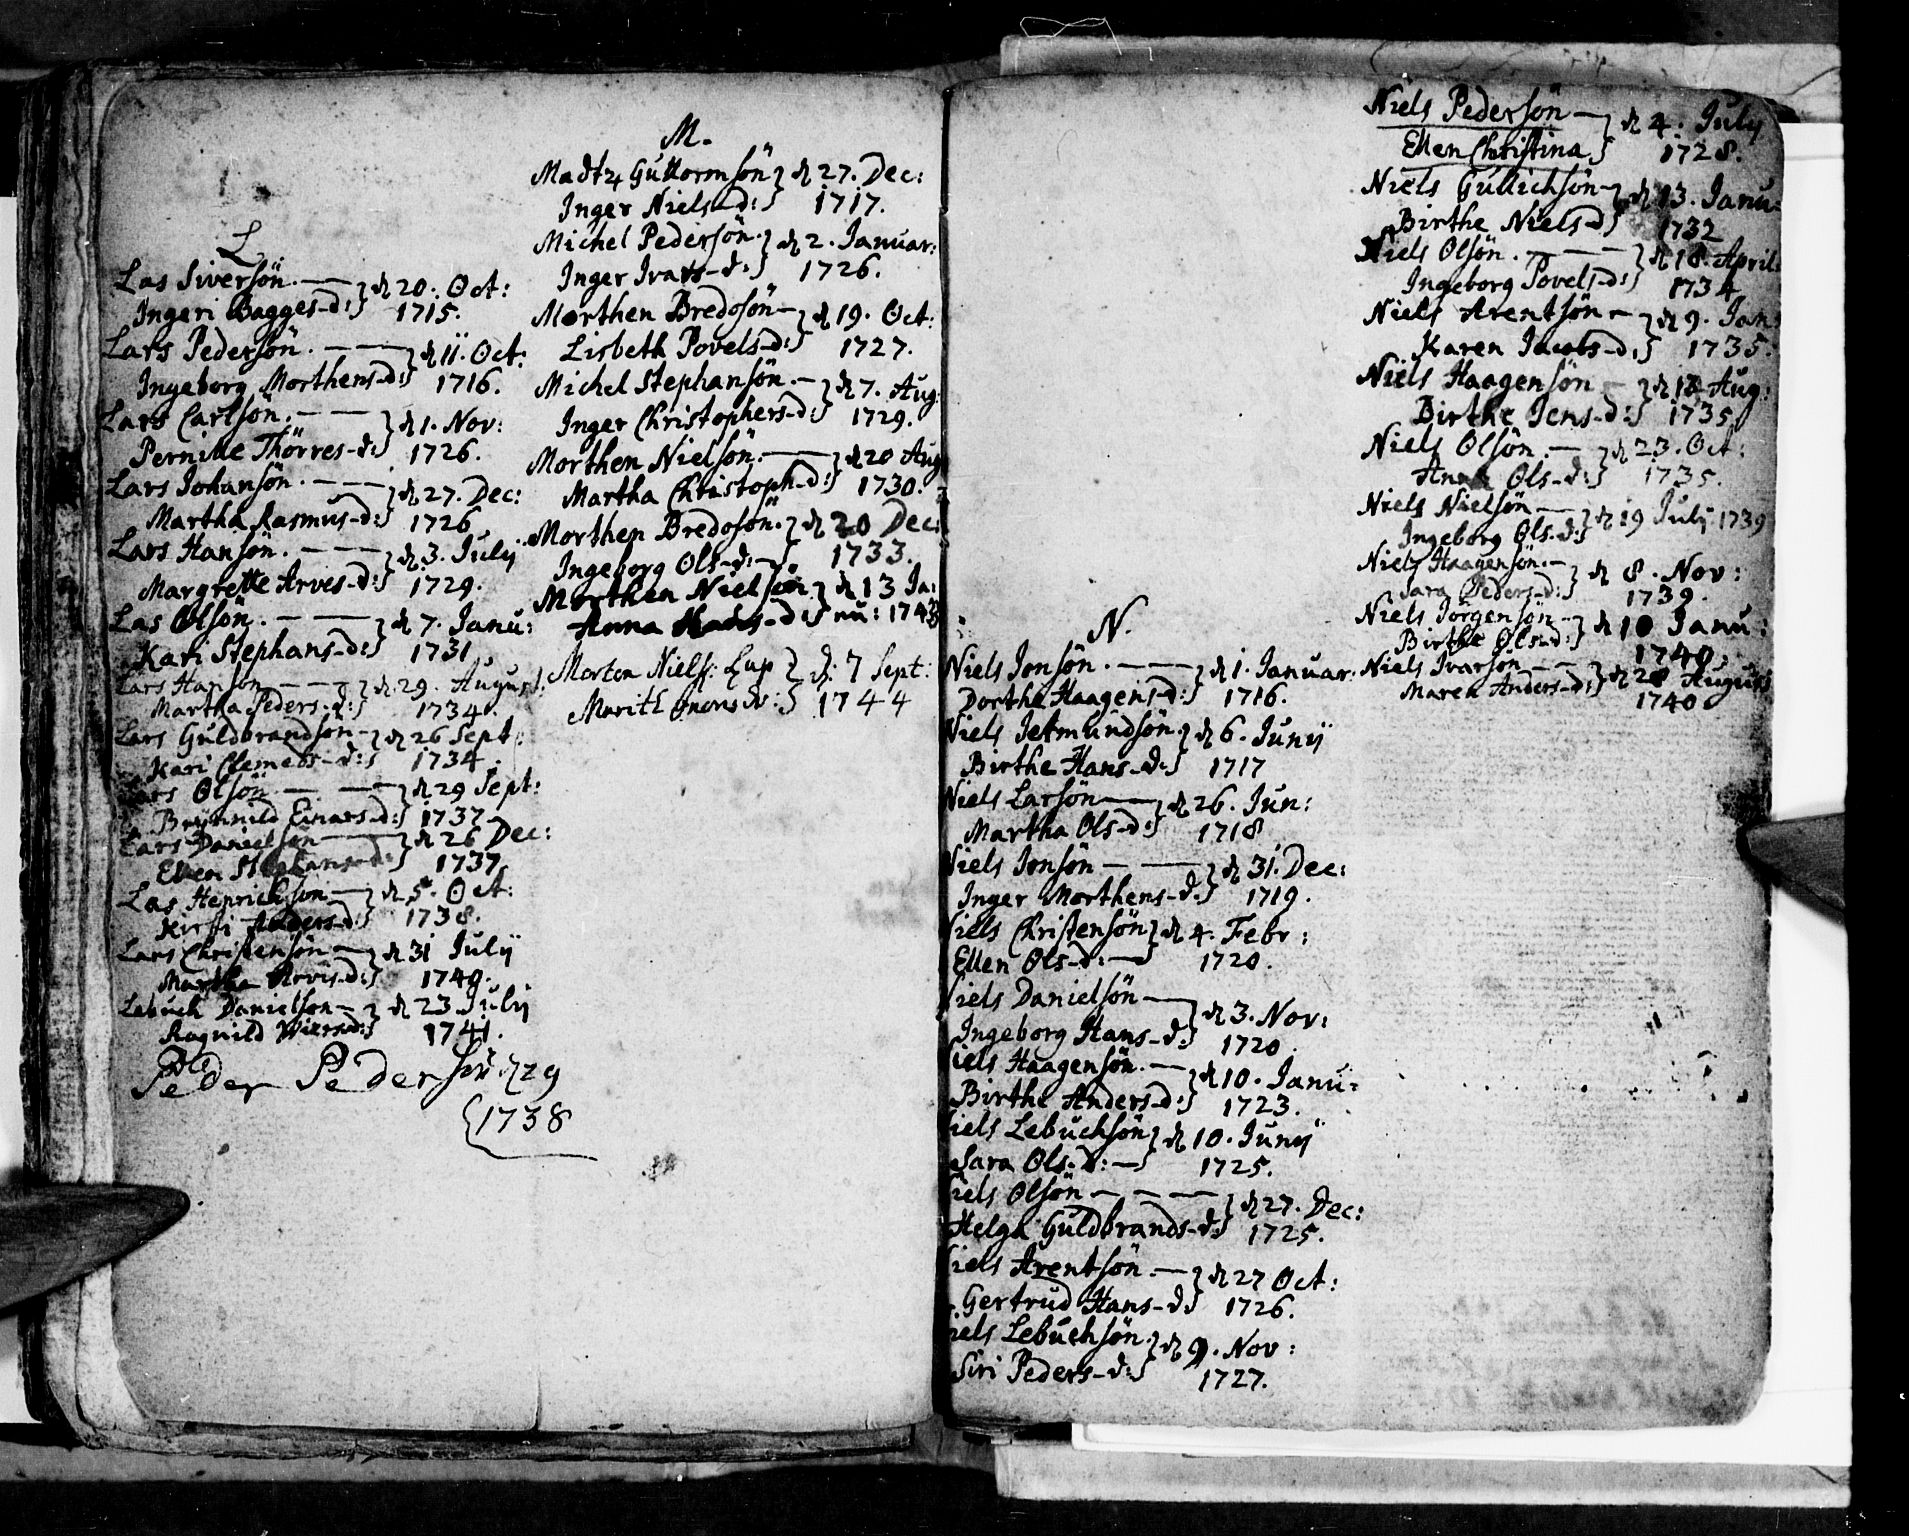 L.
Las Iversön. — — } d 20. Oct:
Ingeri Bagges-d:} 1715.
Lars Pedersön. — — } d 11. Oct:
Ingeborg Morthens-d:} 1716.
Lars Carlsön. — — } d 1. Nov:
Pernille Thörres-d:} 1726.
Lars Johansön. — — } d 27. Dec:
Martha Rasmus-d:} 1726
Lars Hansön. — — } d 3. Julÿ
Margrette Arves-d:} 1729.
Las Olsön. — — } d 7. Janu:
Kari Stephans-d:} 1731
Lars Hansön — — } d 29. August:
Martha Peders-d:} 1734.
Lars Guldbrandsön - } d 26 Sept:
Kari Clemets-d:} 1734.
Lars Olsön — — } d 29 Sept:
Brynnild Einars-d:} 1737
Lars Danielsön — } d 26 Dec:
Ellen Stephans-d:} 1737
Las Henrichson — } d 5. Oct:
Kirsti Anders-d:} 1738.
Lars Christensön — } d 31 Julÿ
Martha Arvis-d:} 1740.
Lebuch Danielson — } d 23 Julÿ
Ragnild d:} 1741.
Peder Pedersön d 29
{1738
M.
Madtz Guttormsön } d 27. Dec:
Inger Niels-d:} 1717.
Michel Pedersön. } d 2. Januar:
Inger Ivars-d:} 1726.
Morthen Bredosön — } d 19. Oct:
Lisbeth Povels-d:} 1727.
Michel Stephansön. — } d 7. Aug:
Inger Christophers-d:} 1729.
Morthen Nielsön. — } d 20 Aug
Martha Christoph-d:} 1730.
Morthen Bredosön. } d 20 Dec:
Ingeborg Ols-d: — } 1733.
Morthen Nielsön } d 13 Ja:
Anna Hans-d:} nu: 1743
Morten Niels: Lup } d: 7 Sept:
Marith :} 1744
N.
Niels Jonsön. — — } d 1. Januar:
Dorthe Haagens-d:} 1716.
Niels Jetmundsön. } d 6. Junÿ
Birthe Hans-d:} 1717
Niels Larsön — } d 26. Jun:
Martha Ols-d:} 1718
Niels Jonsön — — } d 31. Dec:
Inger Morthens-d.} 1719.
Niels Christensön } d 4. Febr:
Ellen Ols-d: — } 1720.
Niels Danielsön — } d 3. Nov:
Ingeborg Hans-d:} 1720
iels Haagensön. — } d 10. Janu:
Birthe Anders-d:} 1723.
iels Lebuchsön } d 10. Junÿ
Sara Ols-d: — } 1725.
iels Olsön — — — } d 27. Dec:
Helga Guldbrands-d:} 1725.
iels Arentsön. — } d 27 Oct:
Gertrud Hans-d:} 1726.
iels Lebuchsön. } d 9. Nov:
Siri Peders-d:} 1727.
Niels Pedersön — } d 4. July
Ellen Christina } 1728.
Niels Gullichsön } d 13. Janu:
Birthe Niels-d} 1732
Niels Olsön. — — } d 18. April:
Ingeborg Povels-d:} 1734
Niels Arentsön — } d 9. Jan:
Karen Jacobs-d:} 1735.
Niels Haagensön — } d 18 Aug:
Birthe Jens-d:} 1735
Niels Olsön. — } d 23. Oct:
Anna Ols-d:} 1735.
Niels Nielsön — } d 19 July 1739
Ingeborg Ols-d:}
Niels Haagensön. — } d 8. Nov:
Sara Peders-d:} 1739.
Niels Jörgensön — } d 10 Janu:
Birthe Ols-d:} 1740.
Niels Ivarsön — — } d 28 August
Maren Anders-d:} 1740